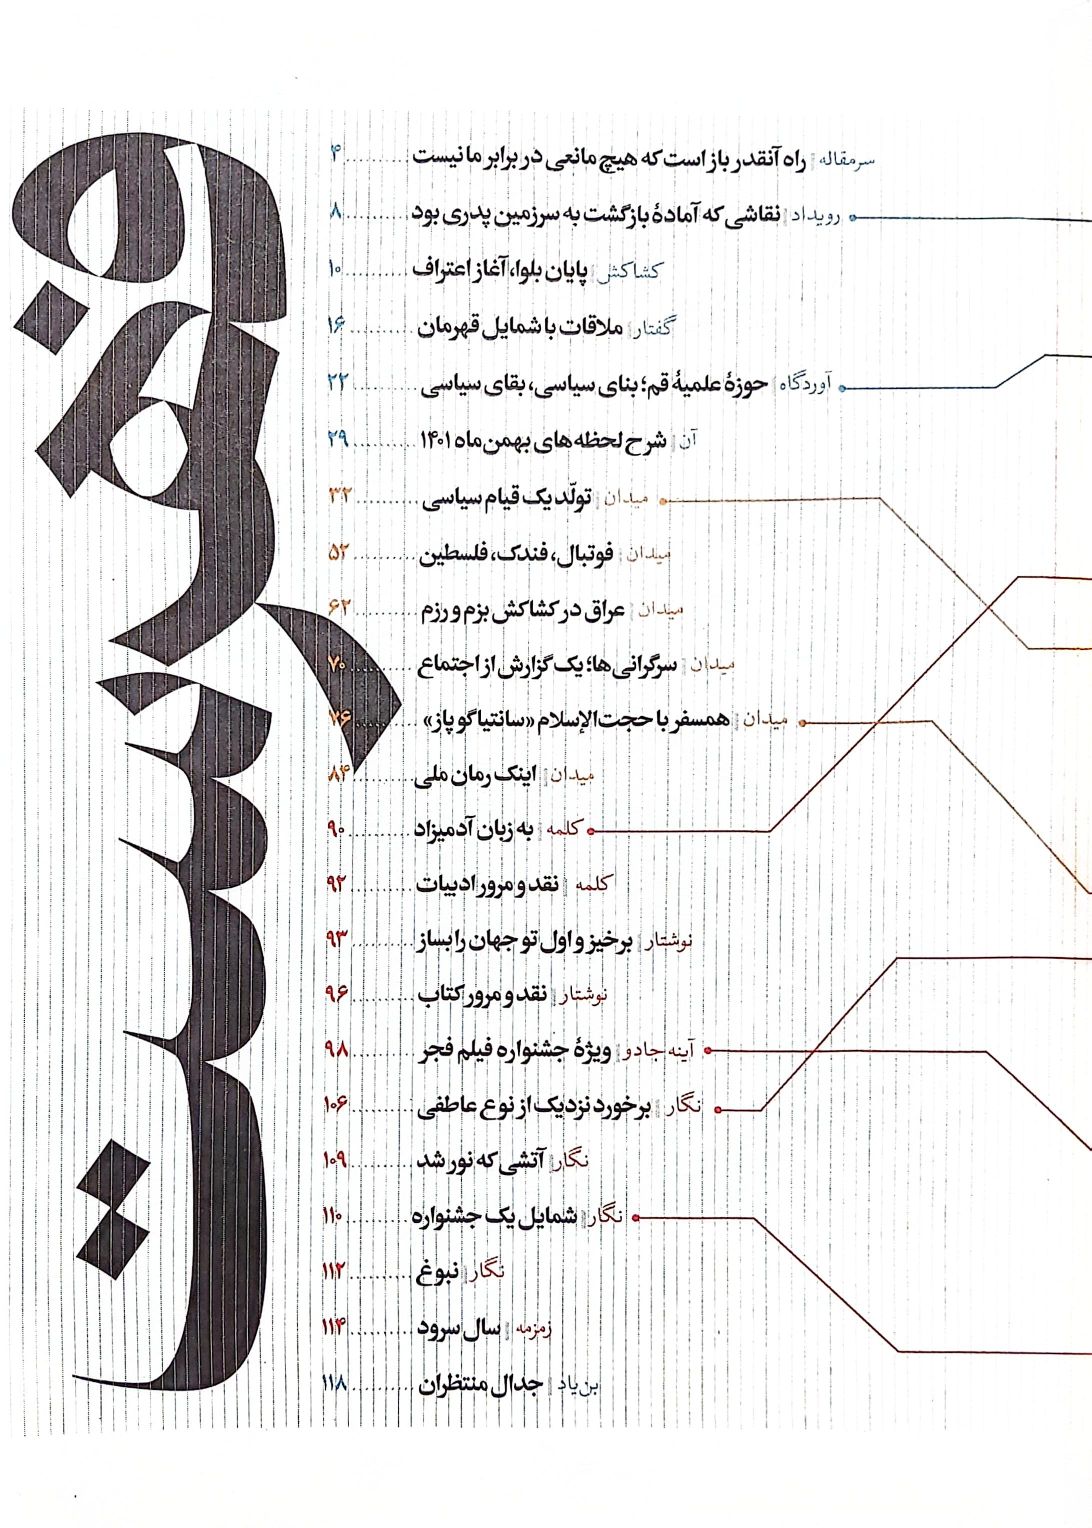 فهرست
سرمقاله | راه آنقدر باز است که هیچ مانعی در برابر ما نیست ........ ۴
رویداد | نقاشی که آمادهٔ بازگشت به سرزمین پدری بود ........ ۸
کشاکش | پایان بلوا، آغاز اعتراف ........ ۱۰
گفتار | ملاقات با شمایل قهرمان ........ ۱۶
آوردگاه | حوزهٔ علمیهٔ قم؛ بنای سیاسی، بقای سیاسی ........ ۲۲
آن | شرح لحظه‌های بهمن‌ماه ۱۴۰۱ ........ ۲۹
میدان | تولّد یک قیام سیاسی ........ ۳۲
میدان | فوتبال، فندک، فلسطین ........ ۵۲
میدان | عراق در کشاکش بزم و رزم ........ ۶۲
میدان | سرگرانی‌ها؛ یک گزارش از اجتماع ........ ۷۰
میدان | همسفر با حجت‌الإسلام «سانتیاگو پاز» ........ ۷۶
میدان | اینک رمان ملی ........ ۸۴
کلمه | به زبان آدمیزاد ........ ۹۰
کلمه | نقد و مرور ادبیات ........ ۹۲
نوشتار | برخیز و اول تو جهان را بساز ........ ۹۳
نوشتار | نقد و مرور کتاب ........ ۹۶
آینه جادو | ویژهٔ جشنواره فیلم فجر ........ ۹۸
نگار | برخورد نزدیک از نوع عاطفی ........ ۱۰۶
نگار | آتشی که نور شد ........ ۱۰۹
نگار | شمایل یک جشنواره ........ ۱۱۰
نگار | نبوغ ........ ۱۱۲
زمزمه | سال سرود ........ ۱۱۴
بن‌یاد | جدال منتظران ........ ۱۱۸